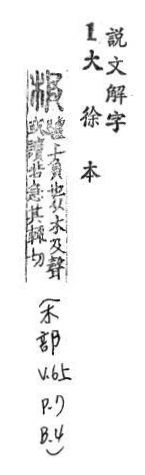 說文解字
1大徐本
极
驢上負也从木及聲
或讀若急其輒切
(木部
V.6上
P.7
B.4)